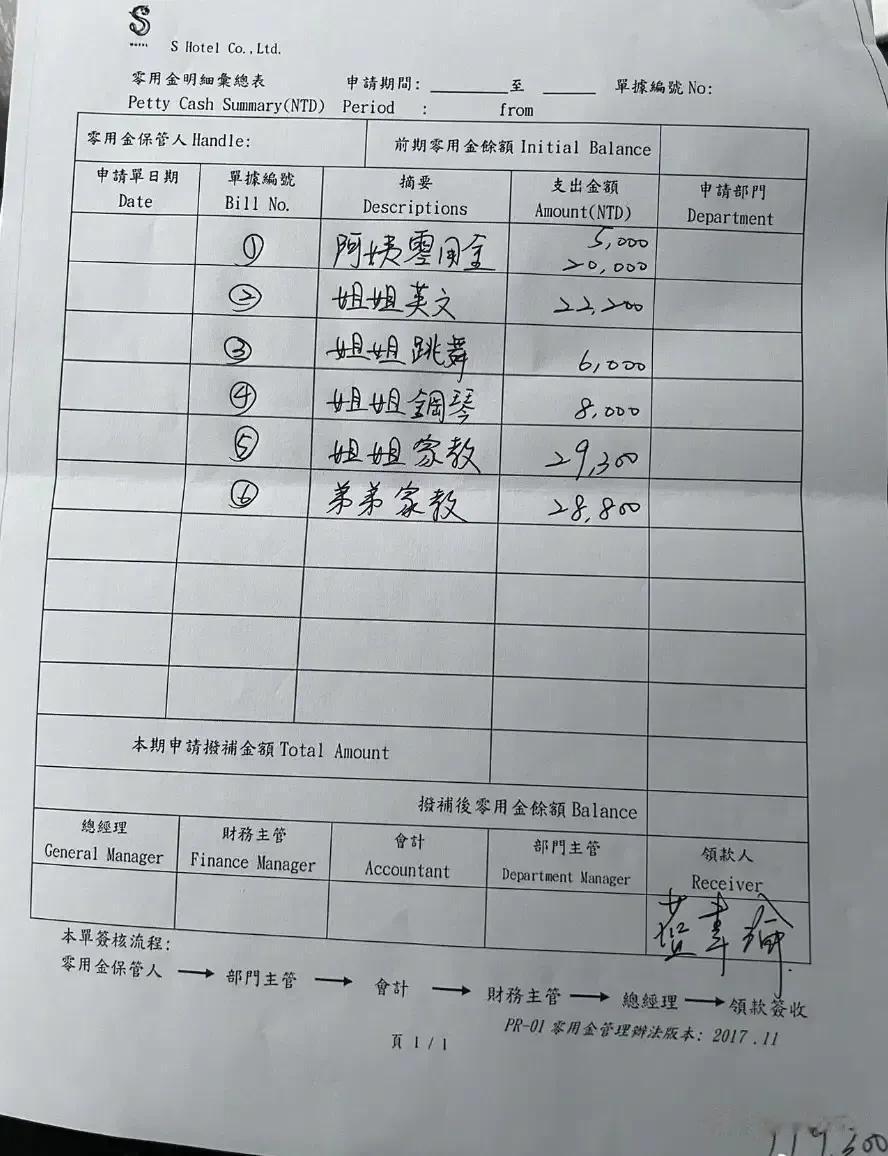 S
HOTEL
S Hotel Co.,Ltd.
零用金明細彙總表 申請期間: ________至 _____ 單據編號 No:
Petty Cash Summary(NTD) Period : from
零用金保管人 Handle: 前期零用金餘額 Initial Balance
申請單日期 單據編號 摘要 支出金額 申請部門
Date Bill No. Descriptions Amount(NTD) Department
① 阿姨零用金 5,000
20,000
② 姐姐英文 22,200
③ 姐姐跳舞 6,000
④ 姐姐鋼琴 8,000
⑤ 姐姐家教 29,300
⑥ 弟弟家教 28,800
本期申請撥補金額 Total Amount
撥補後零用金餘額 Balance
總經理 財務主管 會計 部門主管 領款人
General Manager Finance Manager Accountant Department Manager Receiver
本單簽核流程:
零用金保管人 → 部門主管 → 會計 → 財務主管 → 總經理 → 領款簽收
PR-01 零用金管理辦法版本: 2017.11
頁 1 / 1
119,300